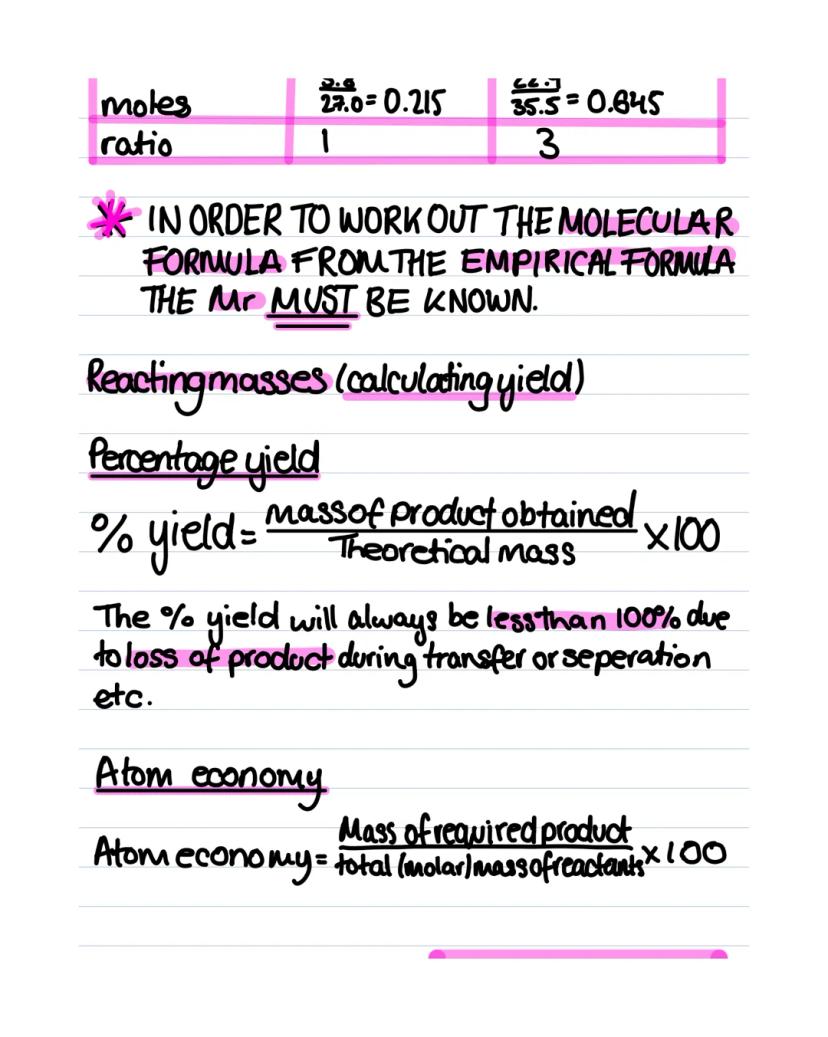 moles 27.0 = 0.215 35.5 = 0.645
ratio 1 3
* IN ORDER TO WORK OUT THE MOLECULAR
FORMULA FROM THE EMPIRICAL FORMULA
THE Mr MUST BE KNOWN.
Reacting masses (calculating yield)
Percentage yield
% yield = mass of product obtained / Theoretical mass x100
The % yield will always be less than 100% due
to loss of product during transfer or seperation
etc.
Atom economy
Atom economy = Mass of required product / total (molar) mass of reactants x100